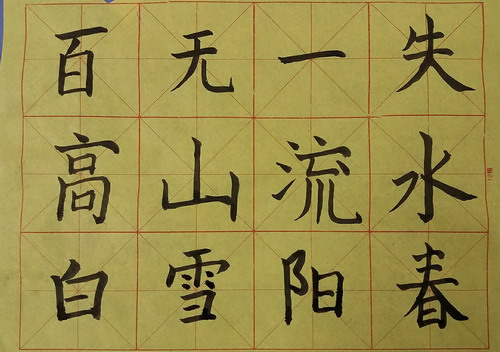 百无一失
高山流水
白雪阳春